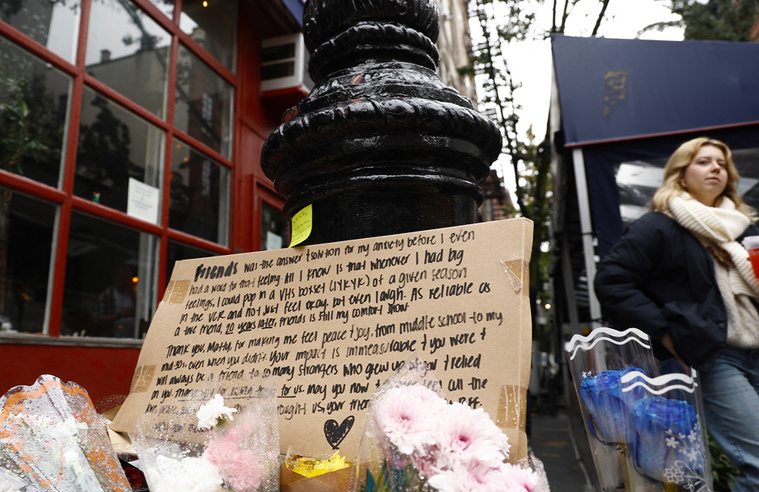 FRIENDS was the answer & solution for my anxiety before I even
had a word for that feeling. All I knew is that whenever I had big
feelings, I could pop in a VHS boxset (IYKYK) of a given season
in the VCR and not just feel okay, but even laugh. As reliable as
a true friend, 20 years later, Friends is still my comfort show.
Thank you, Matty, for making me feel peace & joy, from middle school to my
mid 30s, even when you didn't. Your impact is immeasurable & you were &
will always be a friend to so many strangers who grew up & relied
on you. Thank you for us. may you now feel all the
love, peace, brought us. your friend
BFF.